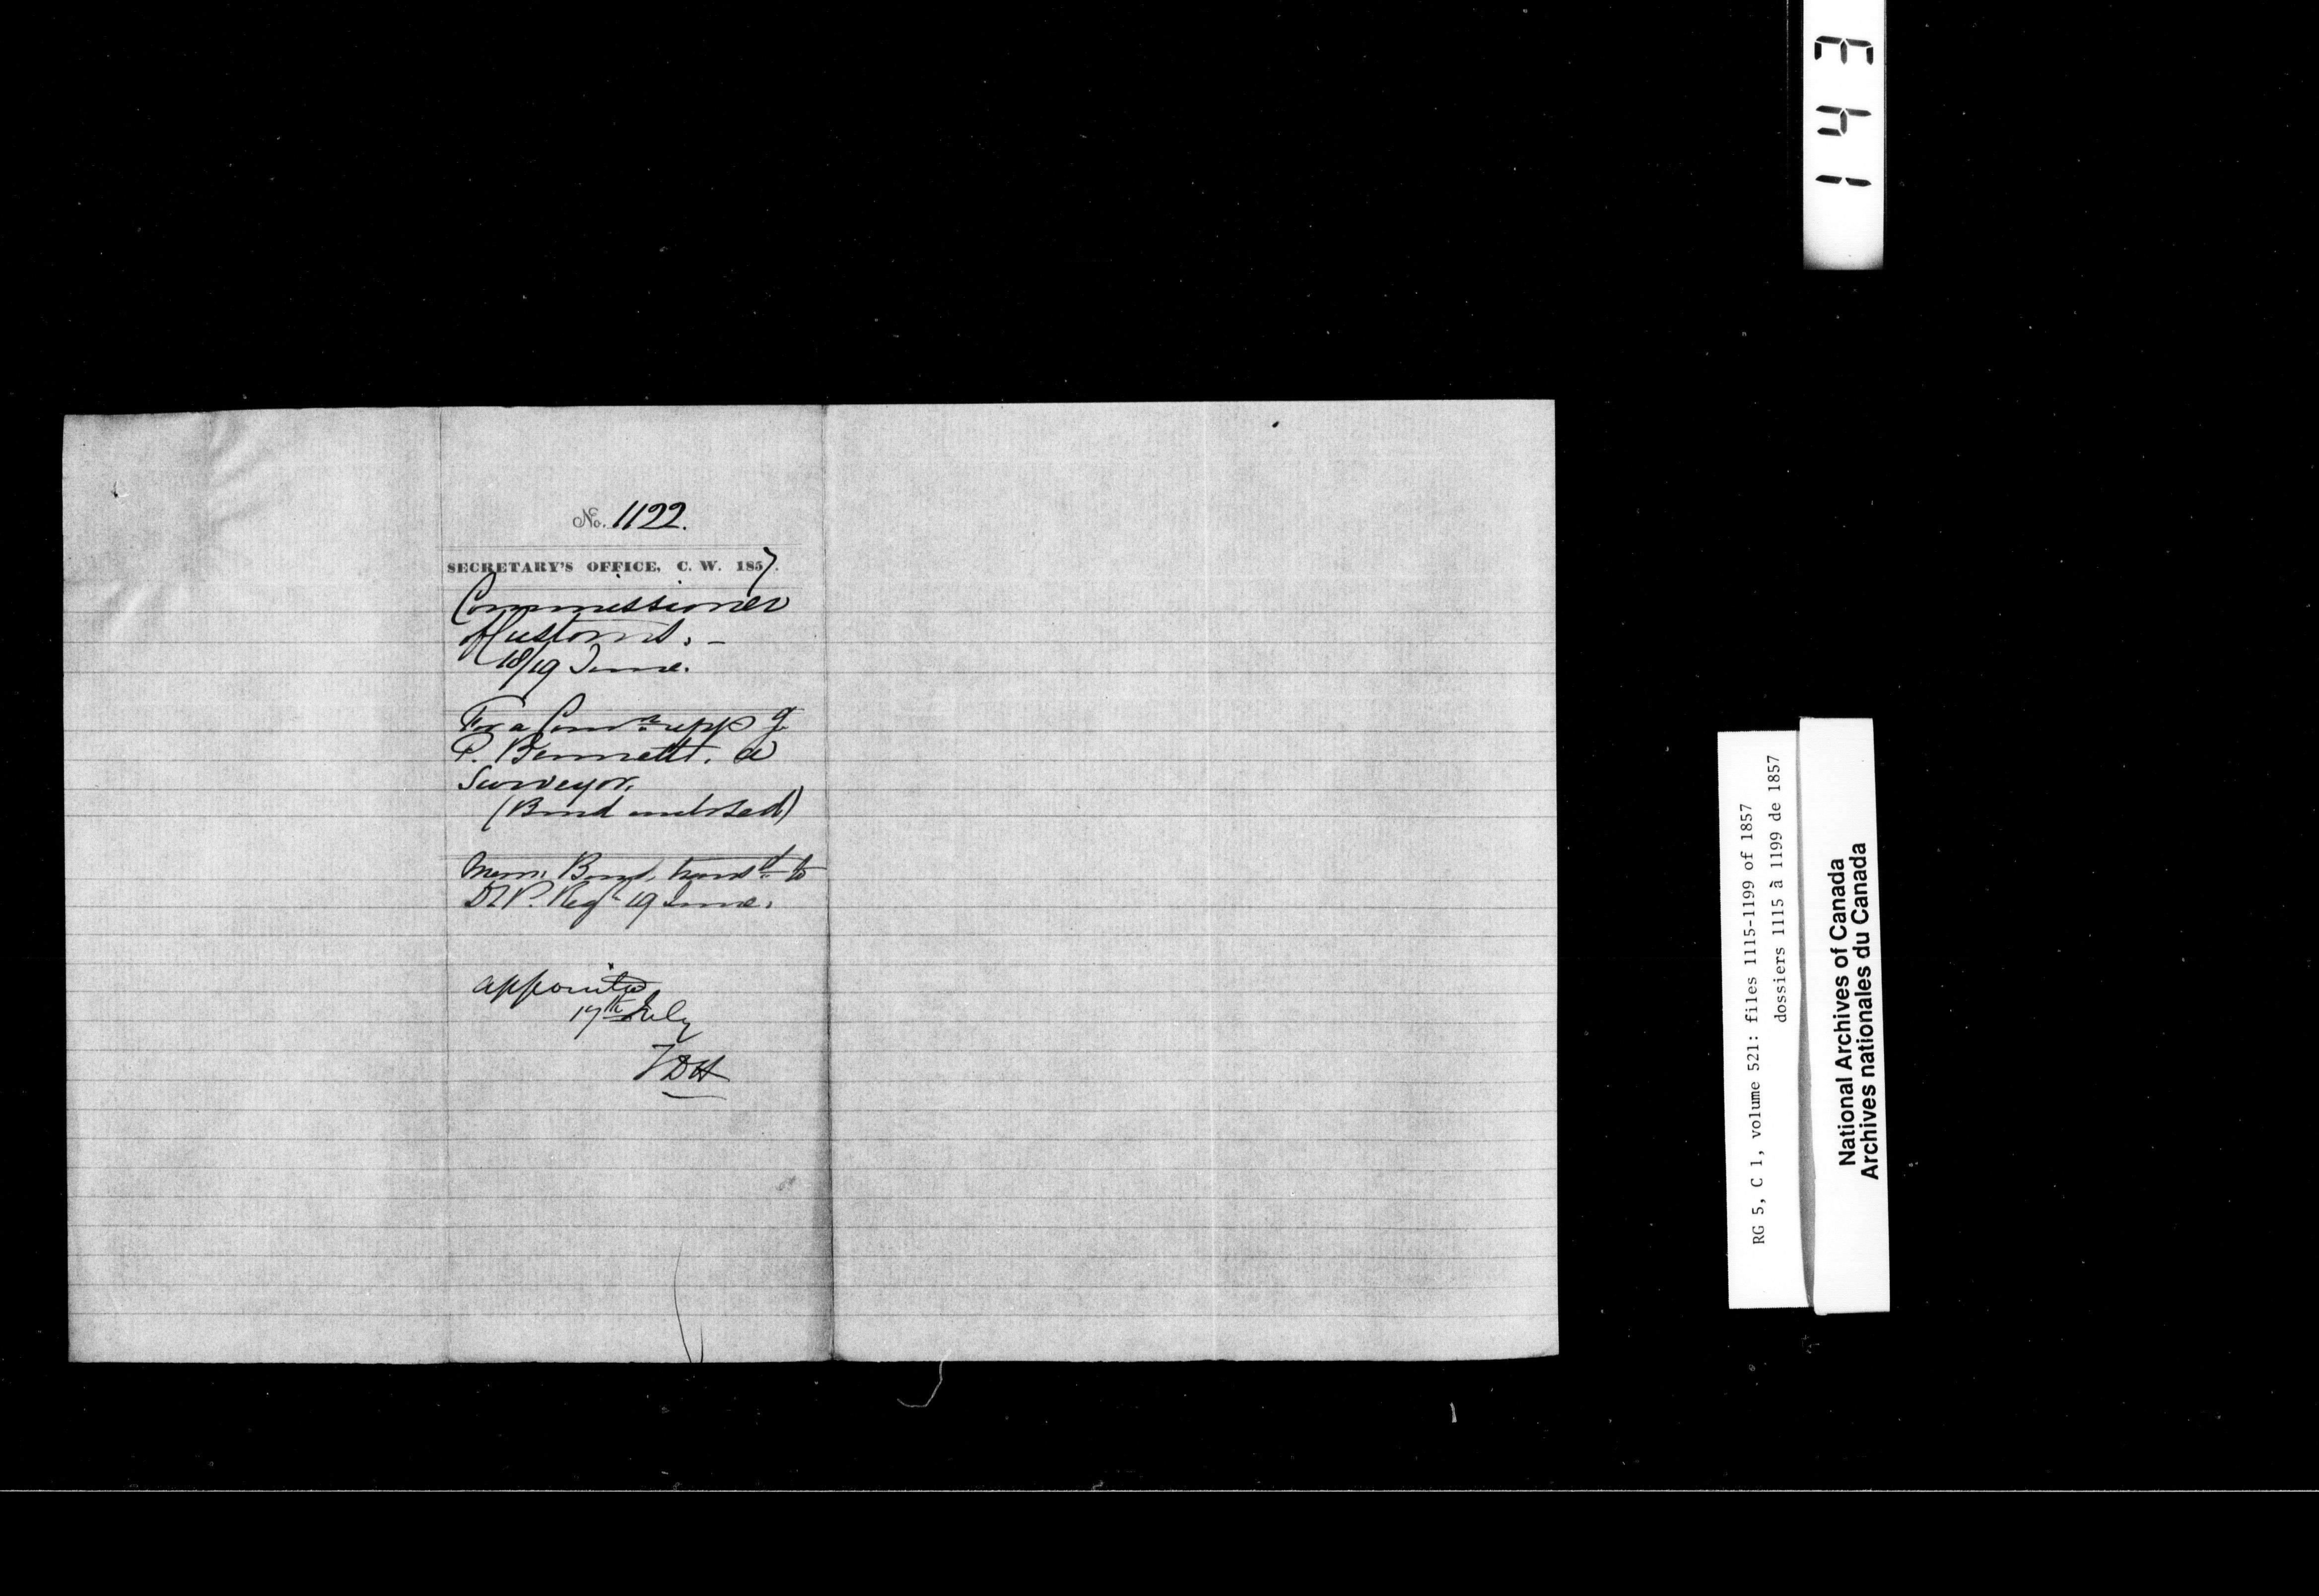 No. 1122.
SECRETARY'S OFFICE, C. W. 1857.
Commissioner
of Customs. -
18/19 June.
For a Comn. appg
P. Bennett. a
Surveyor.
(Bond enclosed)
Mem. Bond. transd. to
D. P. Regr 19 June.
appointed
17th July
TDH
143
RG 5, C 1, volume 521: files 1115-1199 of 1857
dossiers 1115 à 1199 de 1857
National Archives of Canada
Archives nationales du Canada